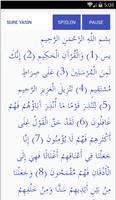 5:08
SURE YASIN SPIELEN PAUSE
بِسْمِ اللَّهِ الرَّحْمَنِ الرَّحِيمِ
يس (1) وَالْقُرْآنِ الْحَكِيمِ (2) إِنَّكَ
لَمِنَ الْمُرْسَلِينَ (3) عَلَى صِرَاطٍ
مُسْتَقِيمٍ (4) تَنْزِيلَ الْعَزِيزِ الرَّحِيمِ
(5) لِتُنْذِرَ قَوْمًا مَا أُنْذِرَ آبَاؤُهُمْ فَهُمْ
غَافِلُونَ (6) لَقَدْ حَقَّ الْقَوْلُ عَلَى
أَكْثَرِهِمْ فَهُمْ لَا يُؤْمِنُونَ (7) إِنَّا
جَعَلْنَا فِي أَعْنَاقِهِمْ أَغْلَالًا فَهِيَ
إِلَى الْأَذْقَانِ فَهُمْ مُقْمَحُونَ (8)
وَجَعَلْنَا مِنْ بَيْنِ أَيْدِيهِمْ سَدًّا وَمِنْ
خَلْفِهِمْ